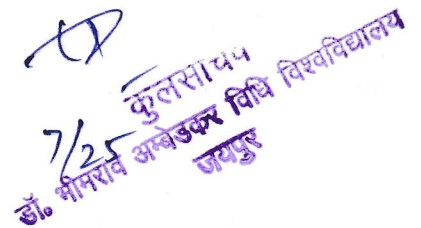 7/25
कुलसचिव
डॉ. भीमराव अम्बेडकर विधि विश्वविद्यालय
जयपुर